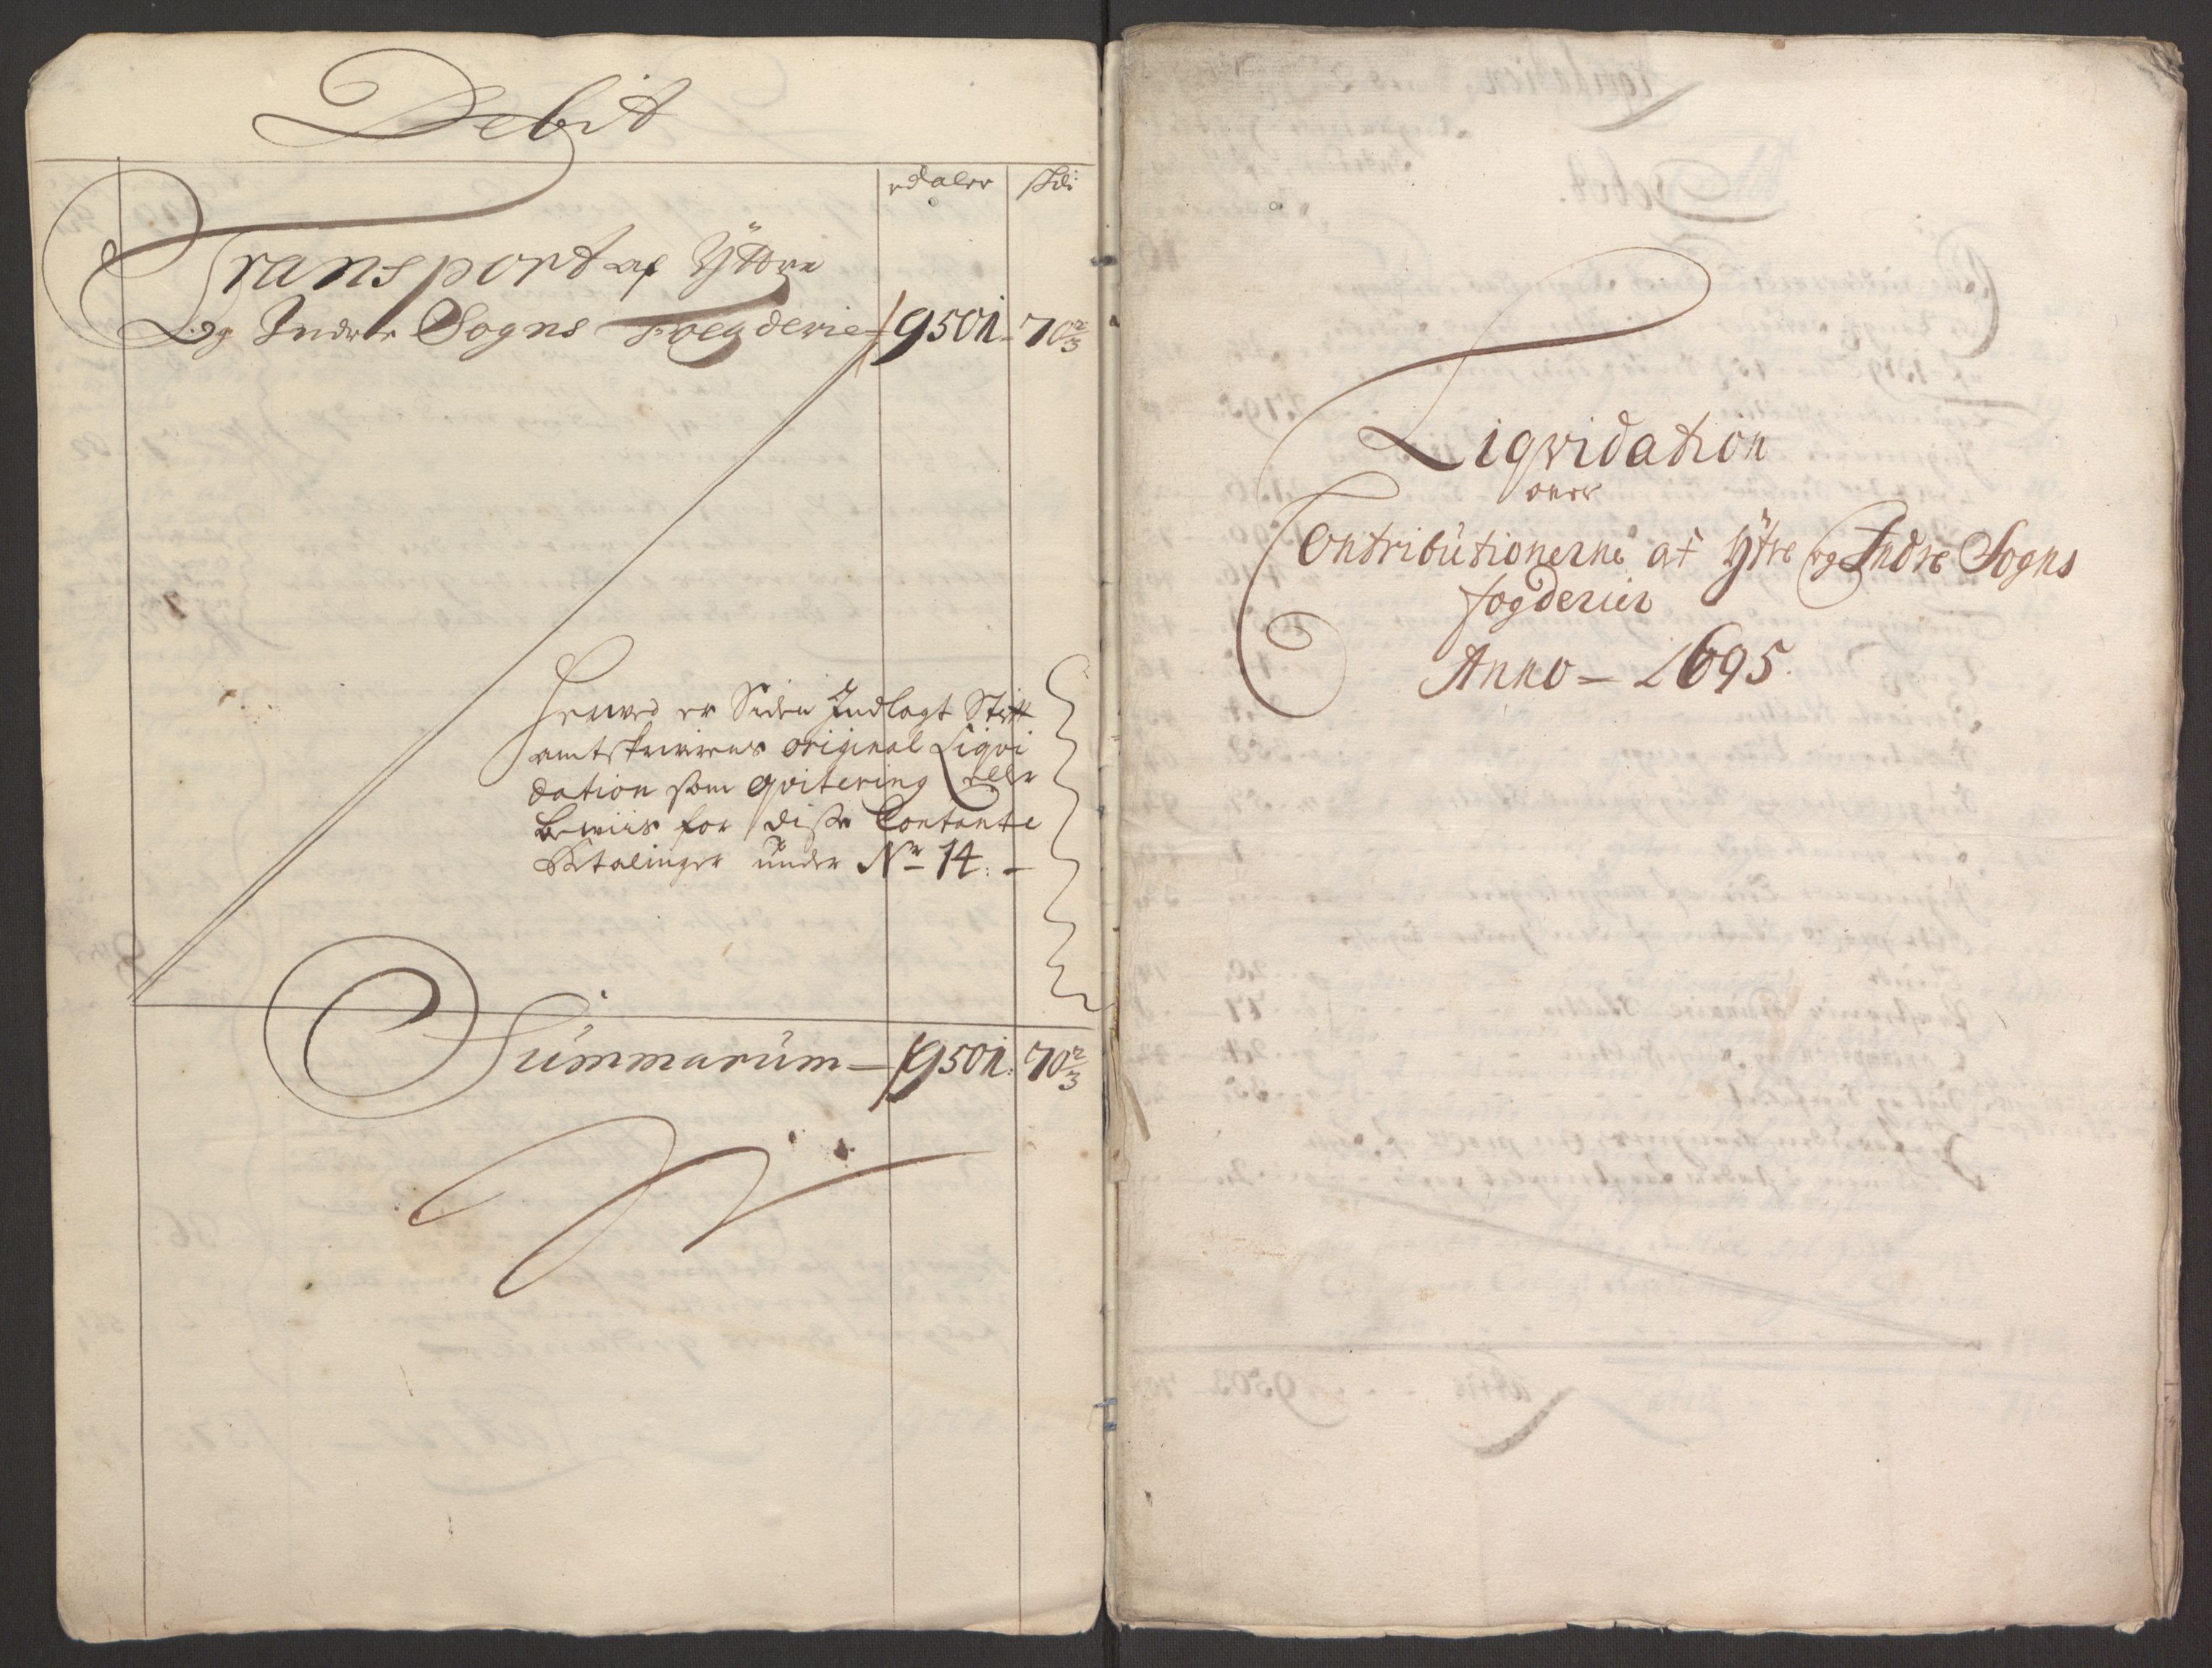 Debit
rdaler skl:
Transport af Ÿttre
Og Indre Sogns Foegderie 9501 70 2/3
Herved er Siden Indlagt Stift
amtskrivens original Liqvi
dation som qvitering eller
beviis for disse Contante
Betalinger under No 14.
Summarum 9501 70 2/3
Liqvidation
over
Contributionerne af Ÿtre og Indre Sogns
fogderier
Anno 1695